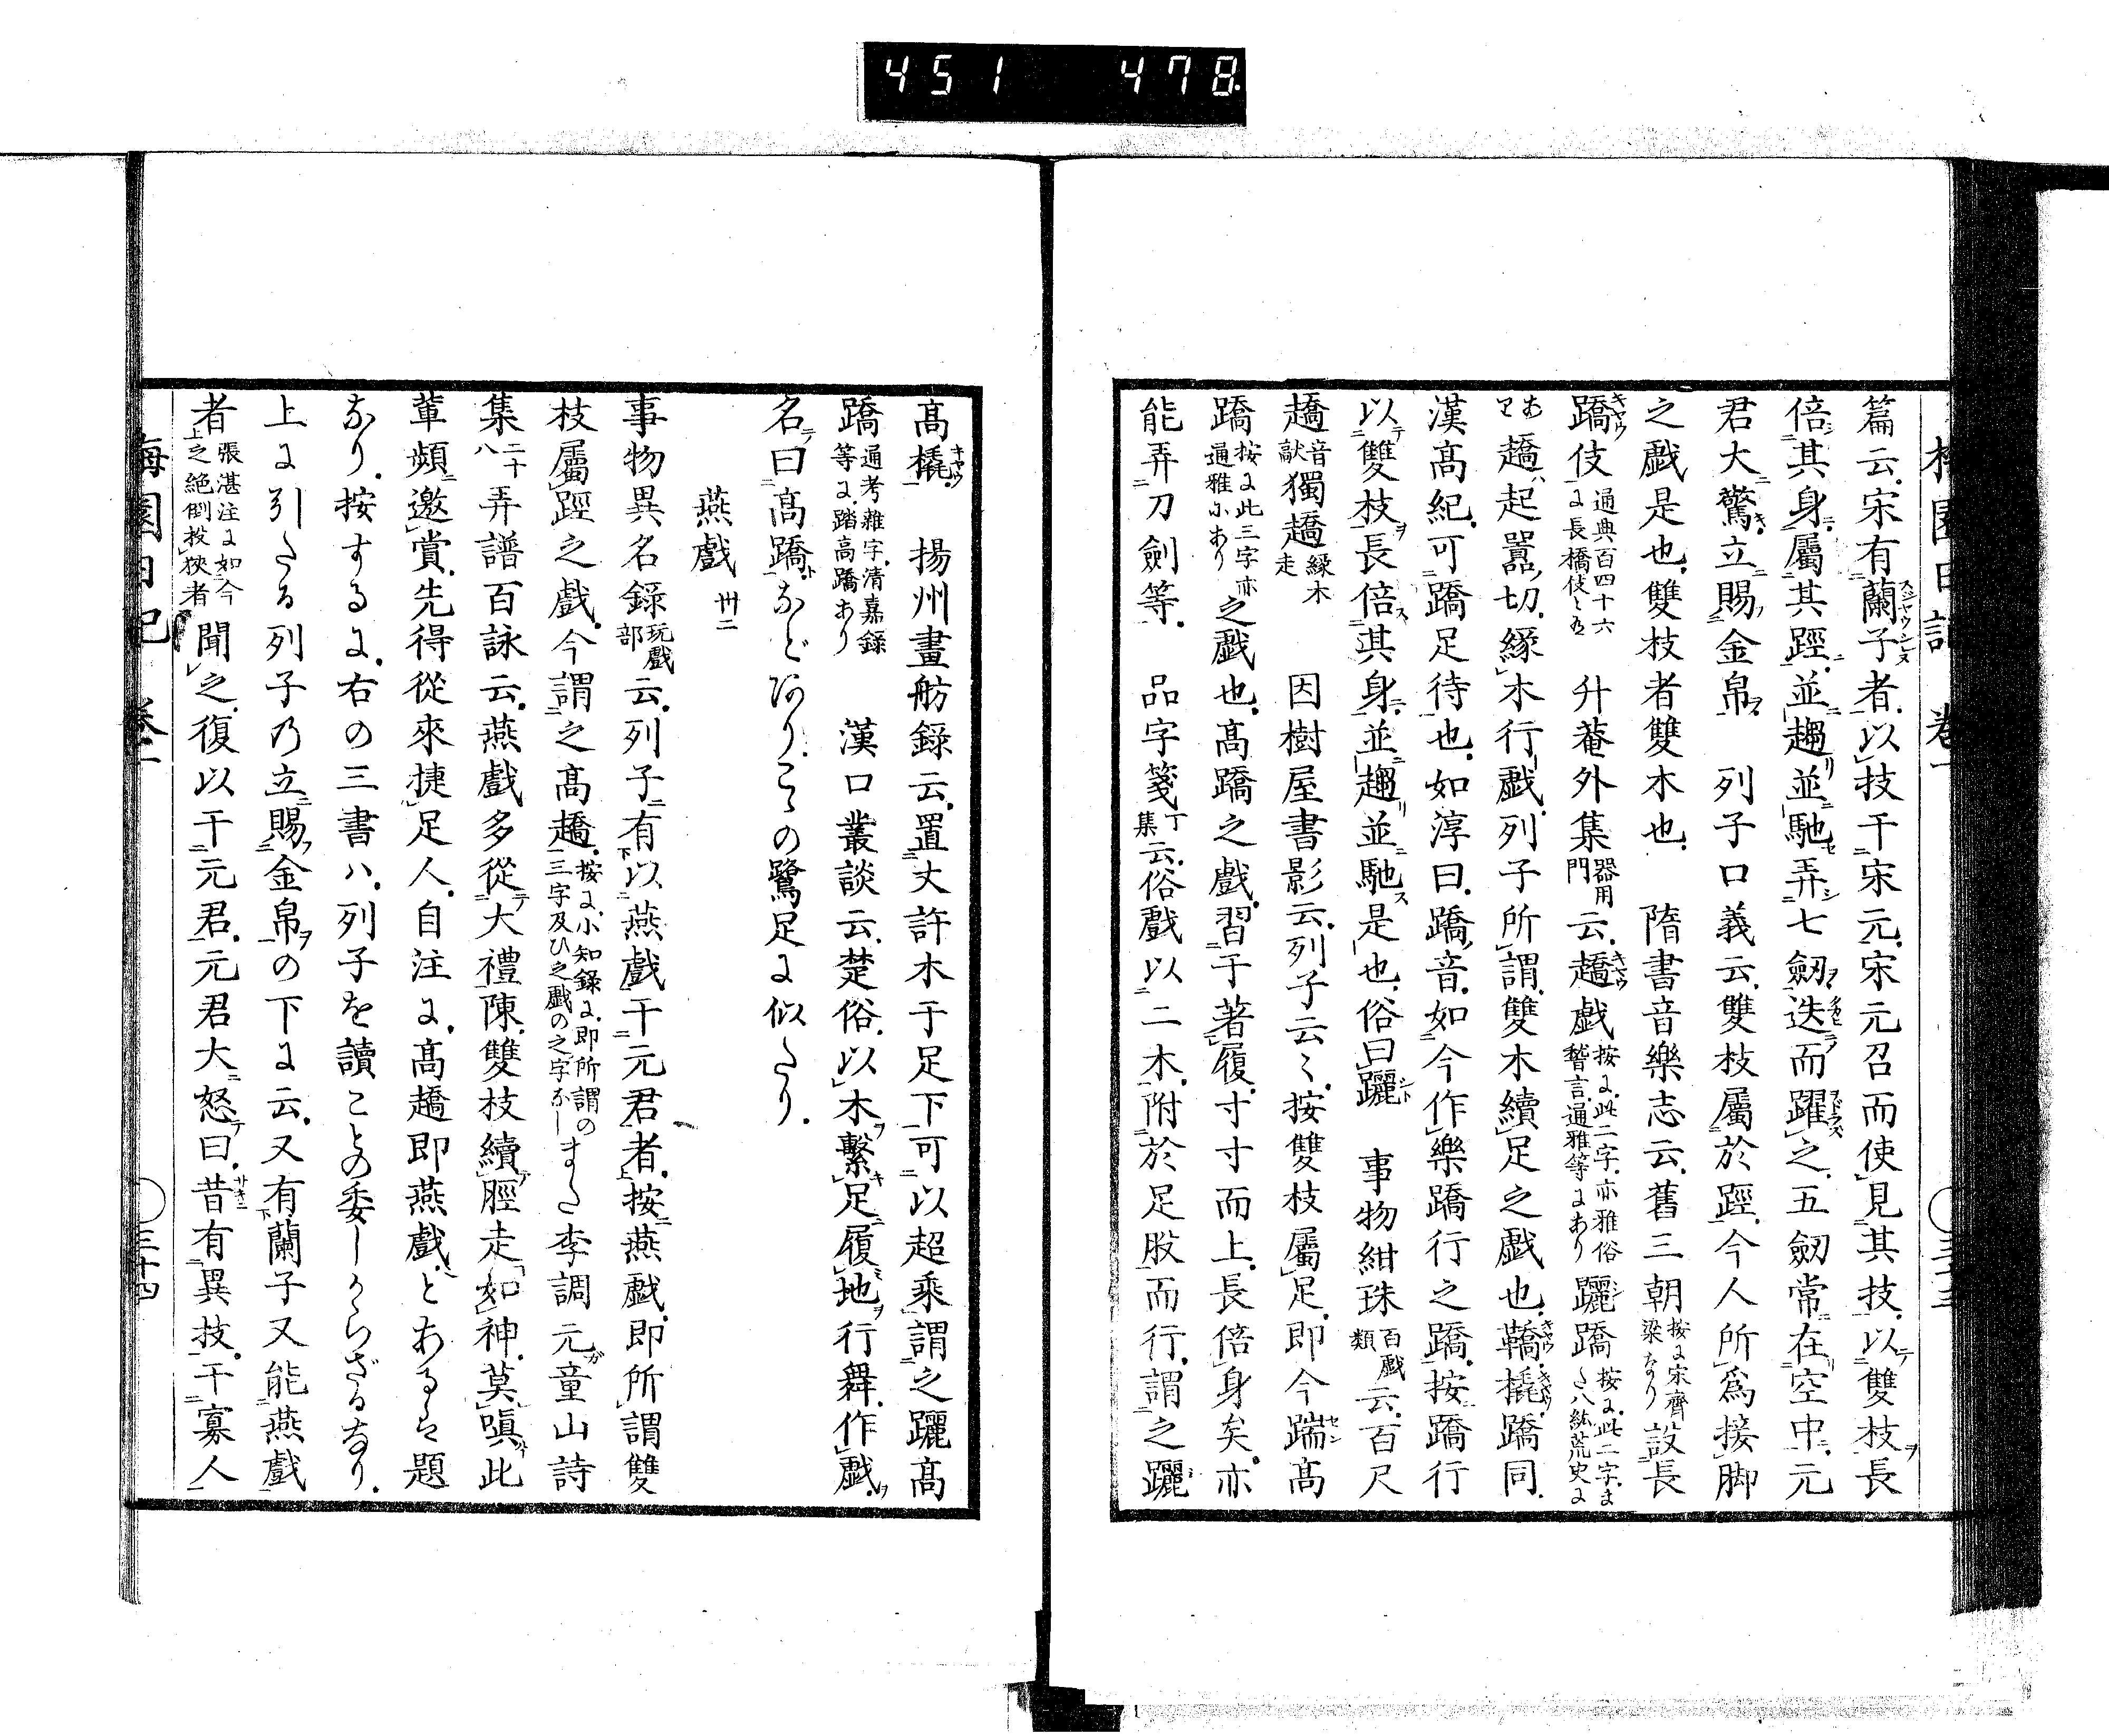 451 478
梅園日記 卷一 三十三
篇云.宋有蘭子者.以技干宋元.宋元召而使見其技.以雙枝長
倍其身.屬其踁.並趨並馳弄七劒迭而躍之.五劒常在空中.元
君大驚.立賜金帛 列子口義云.雙枝屬於踁.今人所爲接脚
之戲是也.雙枝者雙木也. 隋書音樂志云.舊三朝按に宋齊梁なり設長
蹻伎通典百四十六に長橋伎と有 升菴外集器用門云.趫戲按に.此二字.亦雅俗稽言.通雅等にあり躧蹻按に.此二字.また八紘荒史に
あり趫起囂切.緣木行戲.列子所謂.雙木續足之戲也.鞽.橇.蹻同.
漢高紀.可蹻足待也.如淳曰.蹻音.如今作樂蹻行之蹻.按蹻行
以雙枝長倍其身.並趨並馳是也.俗曰躧 事物紺珠百戲類云.百尺
趫音獻獨趫緣木走 因樹屋書影云.列子云々.按雙枝屬足.即今踹高
蹻按に此三字亦通雅にあり之戲也.高蹻之戲.習于著履.寸寸而上.長倍身矣.亦
能弄刀劍等. 品字箋丁集云.俗戲以二木.附於足股而行.謂之躧
高橇. 揚州畫舫錄云.置丈許木于足下.可以超乘.謂之躧高
蹻通考雜字.清嘉錄等に.踏高蹻あり 漢口叢談云.楚俗.以木繫足履地行舞.作戲.
名曰高蹻.などあり.こゝの鷺足に似たり.
燕戲 卅二
事物異名錄玩戲部云.列子有以燕戲干元君者.按燕戲.即所謂雙
枝屬踁之戲.今謂之高趫.按に.小知錄に.即所謂の三字及ひ之戲の之字なしまた李調元童山詩
集二十八弄譜百詠云.燕戲多從大禮陳.雙枝續脛走如神.莫嗔此
輩頻邀賞.先得從來捷足人.自注に.高趫即燕戲.とあるは題
なり.按するに.右の三書ハ.列子を讀ことの委しからざるなり.
上に引たる列子の立賜金帛の下に云.又有蘭子又能燕戲
者張湛注に如今之絕倒投狹者聞之.復以干元君.元君大怒曰.昔有異技.干寡人
梅園日記 卷一 三十四